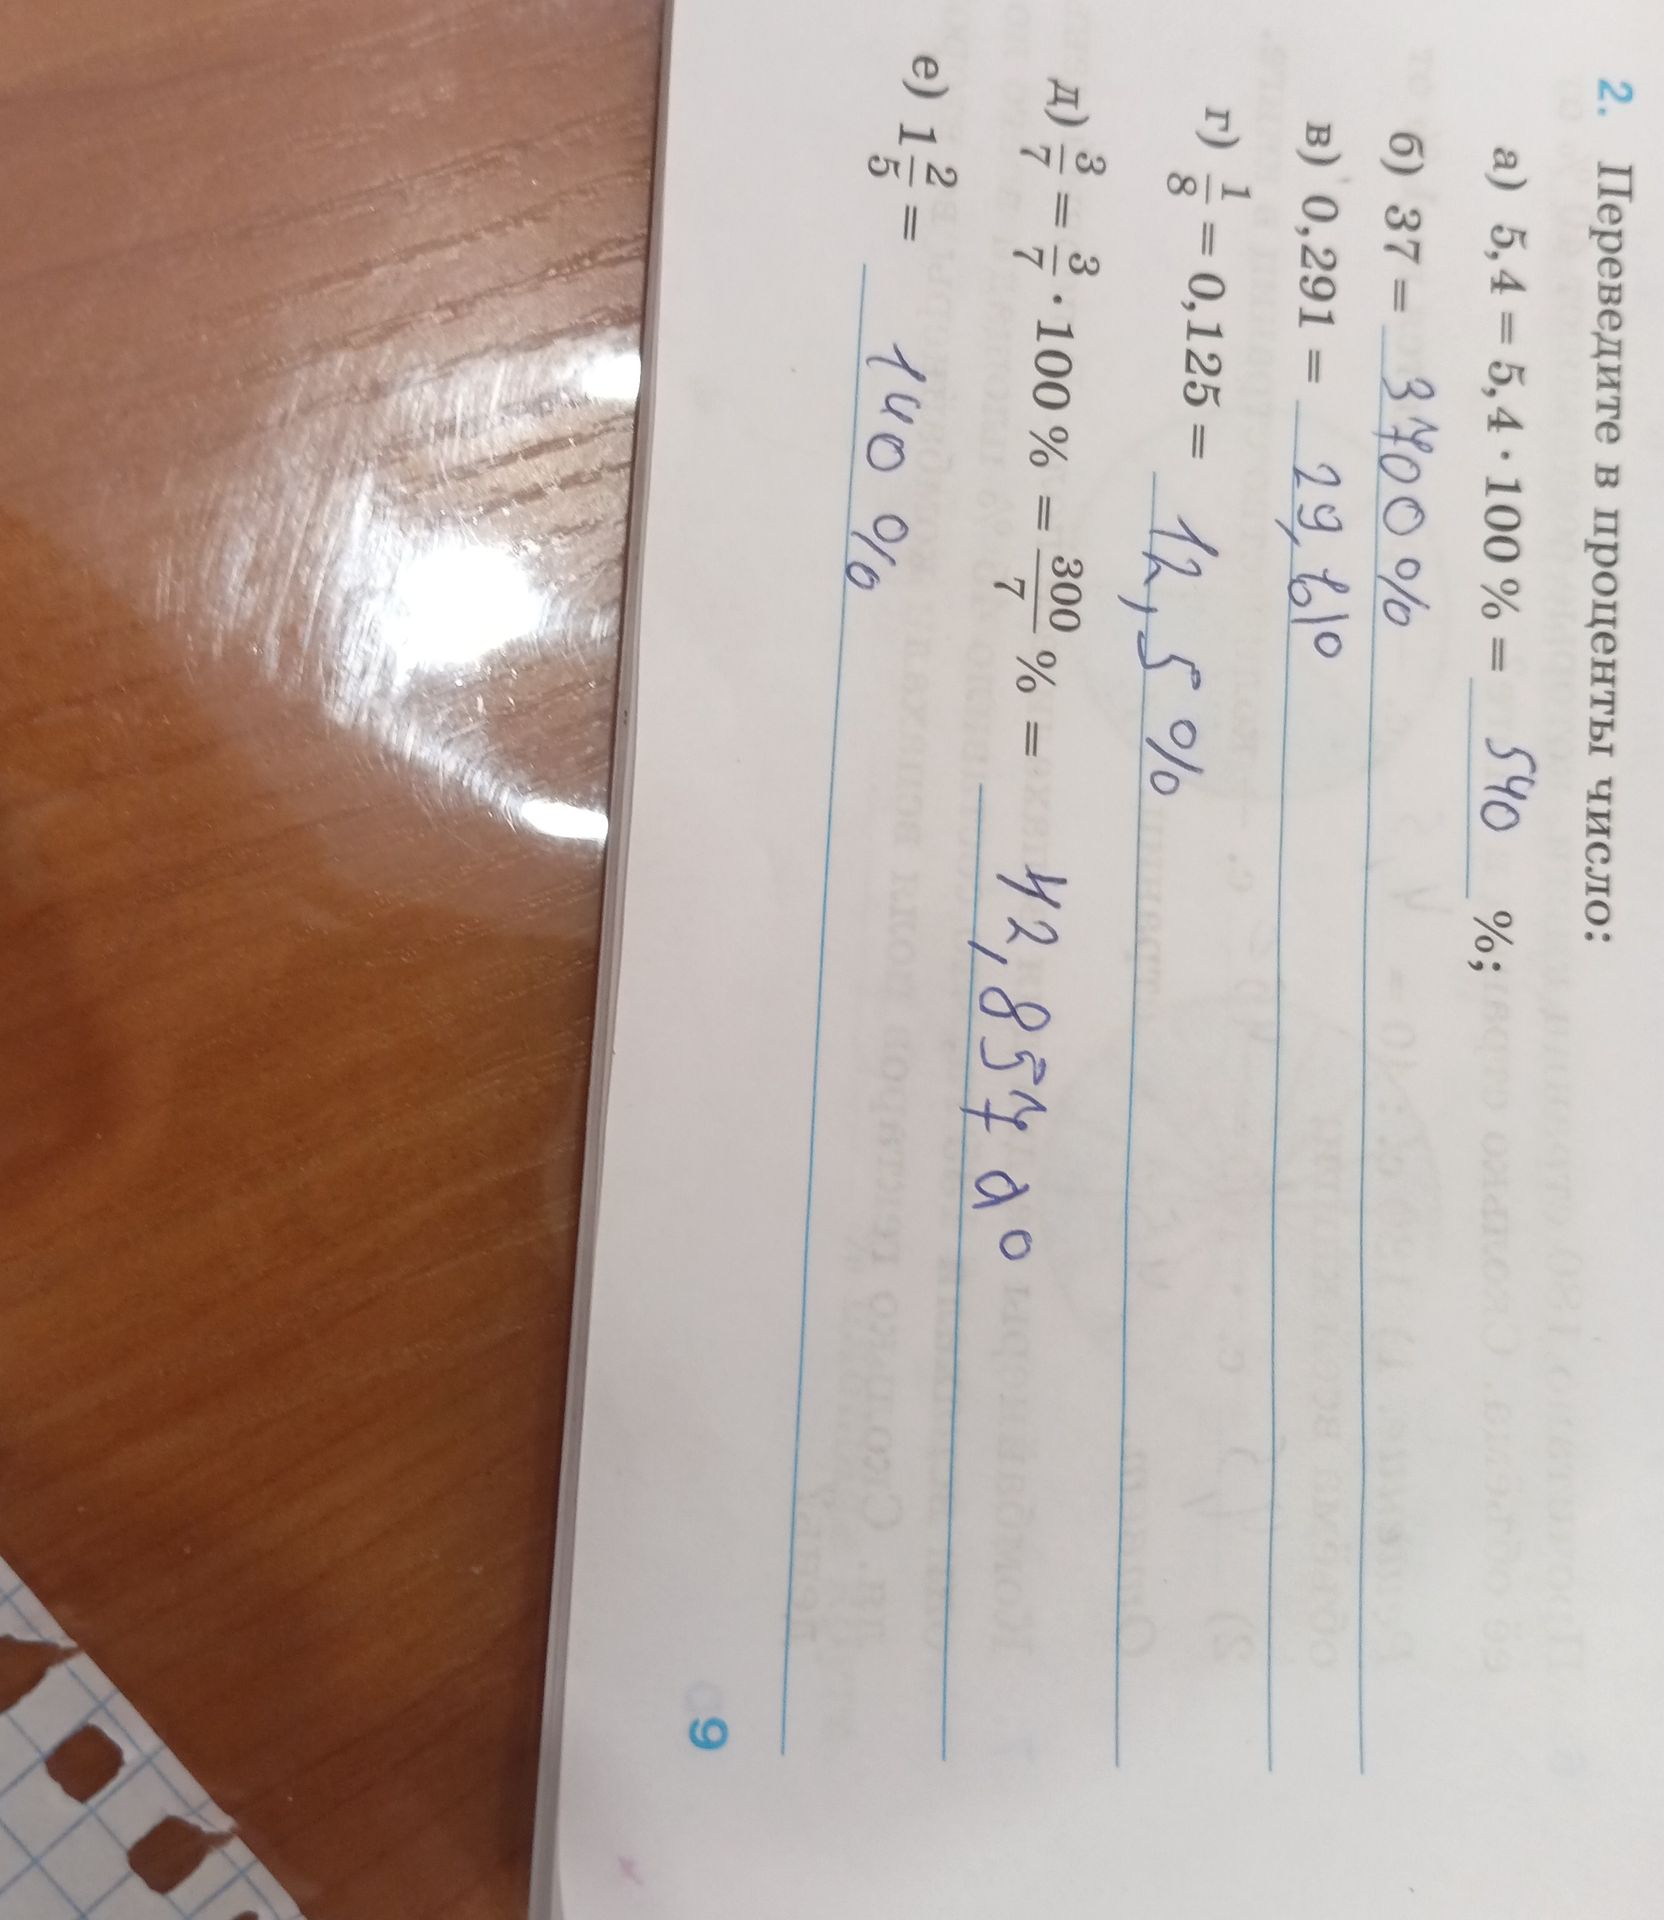 2. Переведите в проценты число:
а) 5,4 = 5,4 · 100 % = 540 %;
б) 37 = 3700 %
в) 0,291 =
г) 1/8 = 0,125 = 12,5 %
д) 3/7 = 3/7 · 100 % = 300/7 % = 42,857 %
е) 1 2/5 = 140 %
9